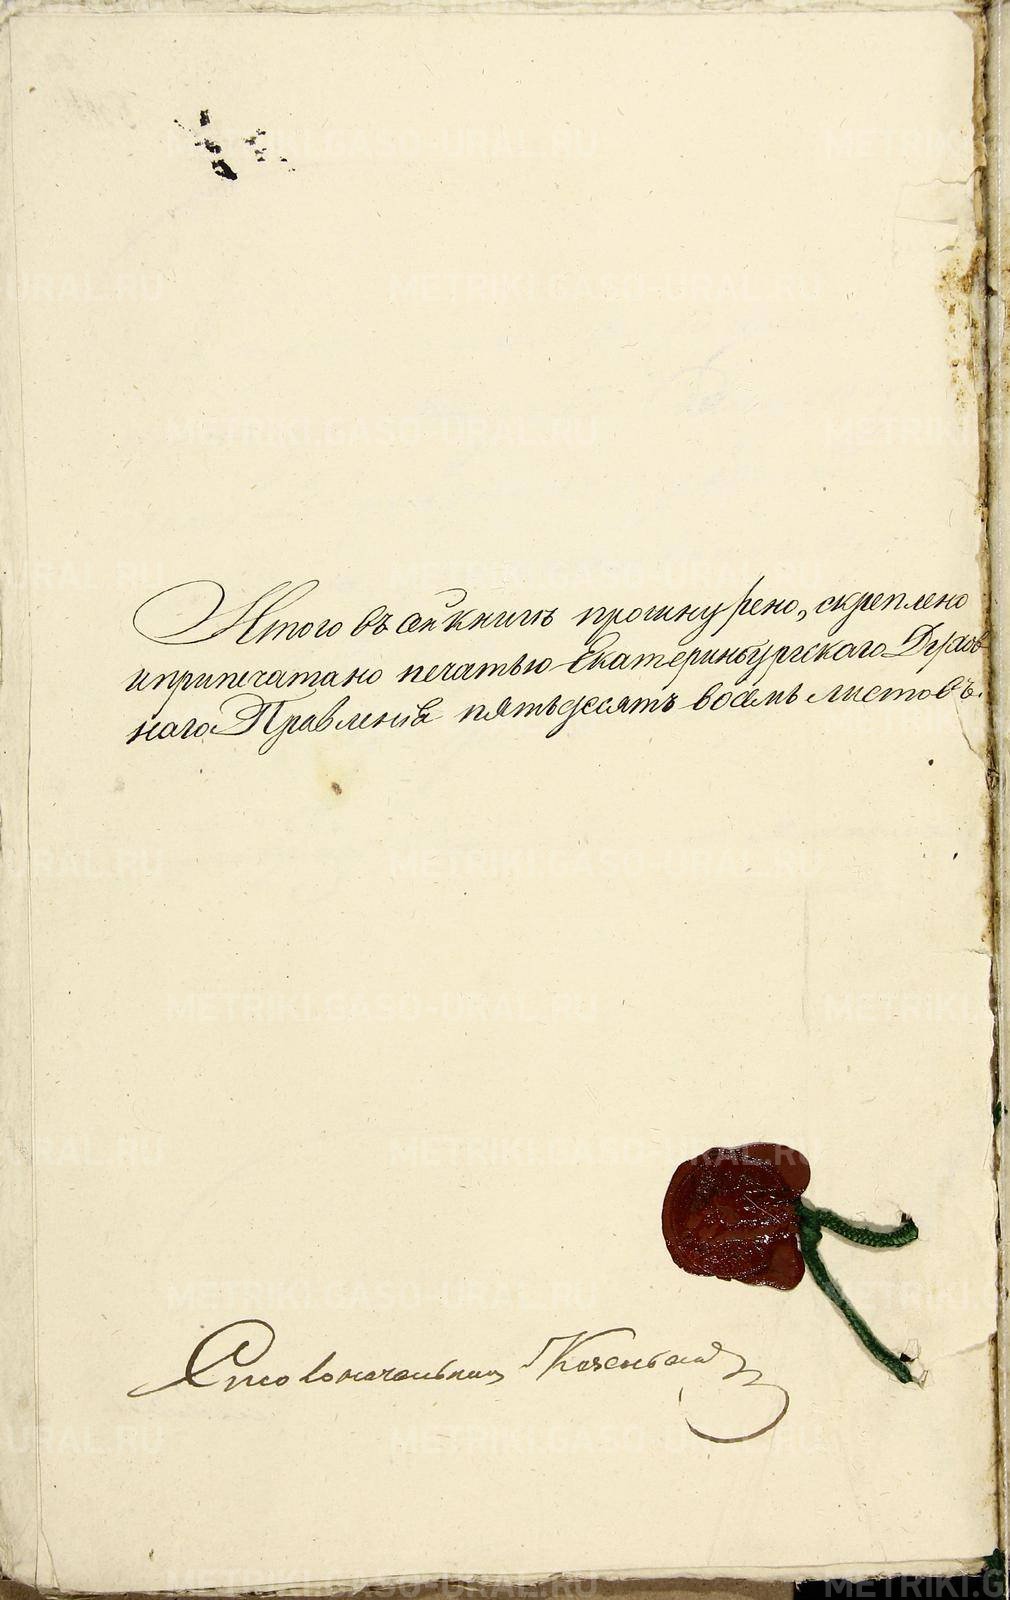 Итого въ сей книгѣ прошнурено, скреплено
и припечатано печатью Екатеринбургскаго Духов
наго Правленія пятьдесятъ восемь листовъ.
Столоначальникъ
METRIKI.GASO-URAL.RU